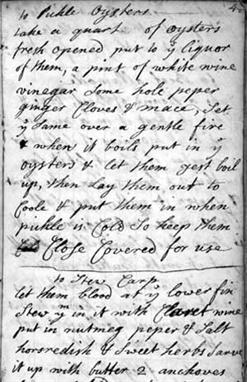 to Pickle Oysters
take a quart of oysters
fresh opened put to y Liquor
of them, a pint of white wine
vinegar Some hole peper
ginger Cloves & mace, Set
y Same over a gentle fire
& when it boils put in y
oysters & let them Just boil
up, then Lay them out to
Coole & put them in when
pickle is Cold So keep them
Close Covered for use
to Stew Carp
let them blood at y lower fin
Stew ym in it with Claret wine
put in nutmeg peper & Salt
horsredish & Sweet herbs Sarve
it up with butter 2 anchoves